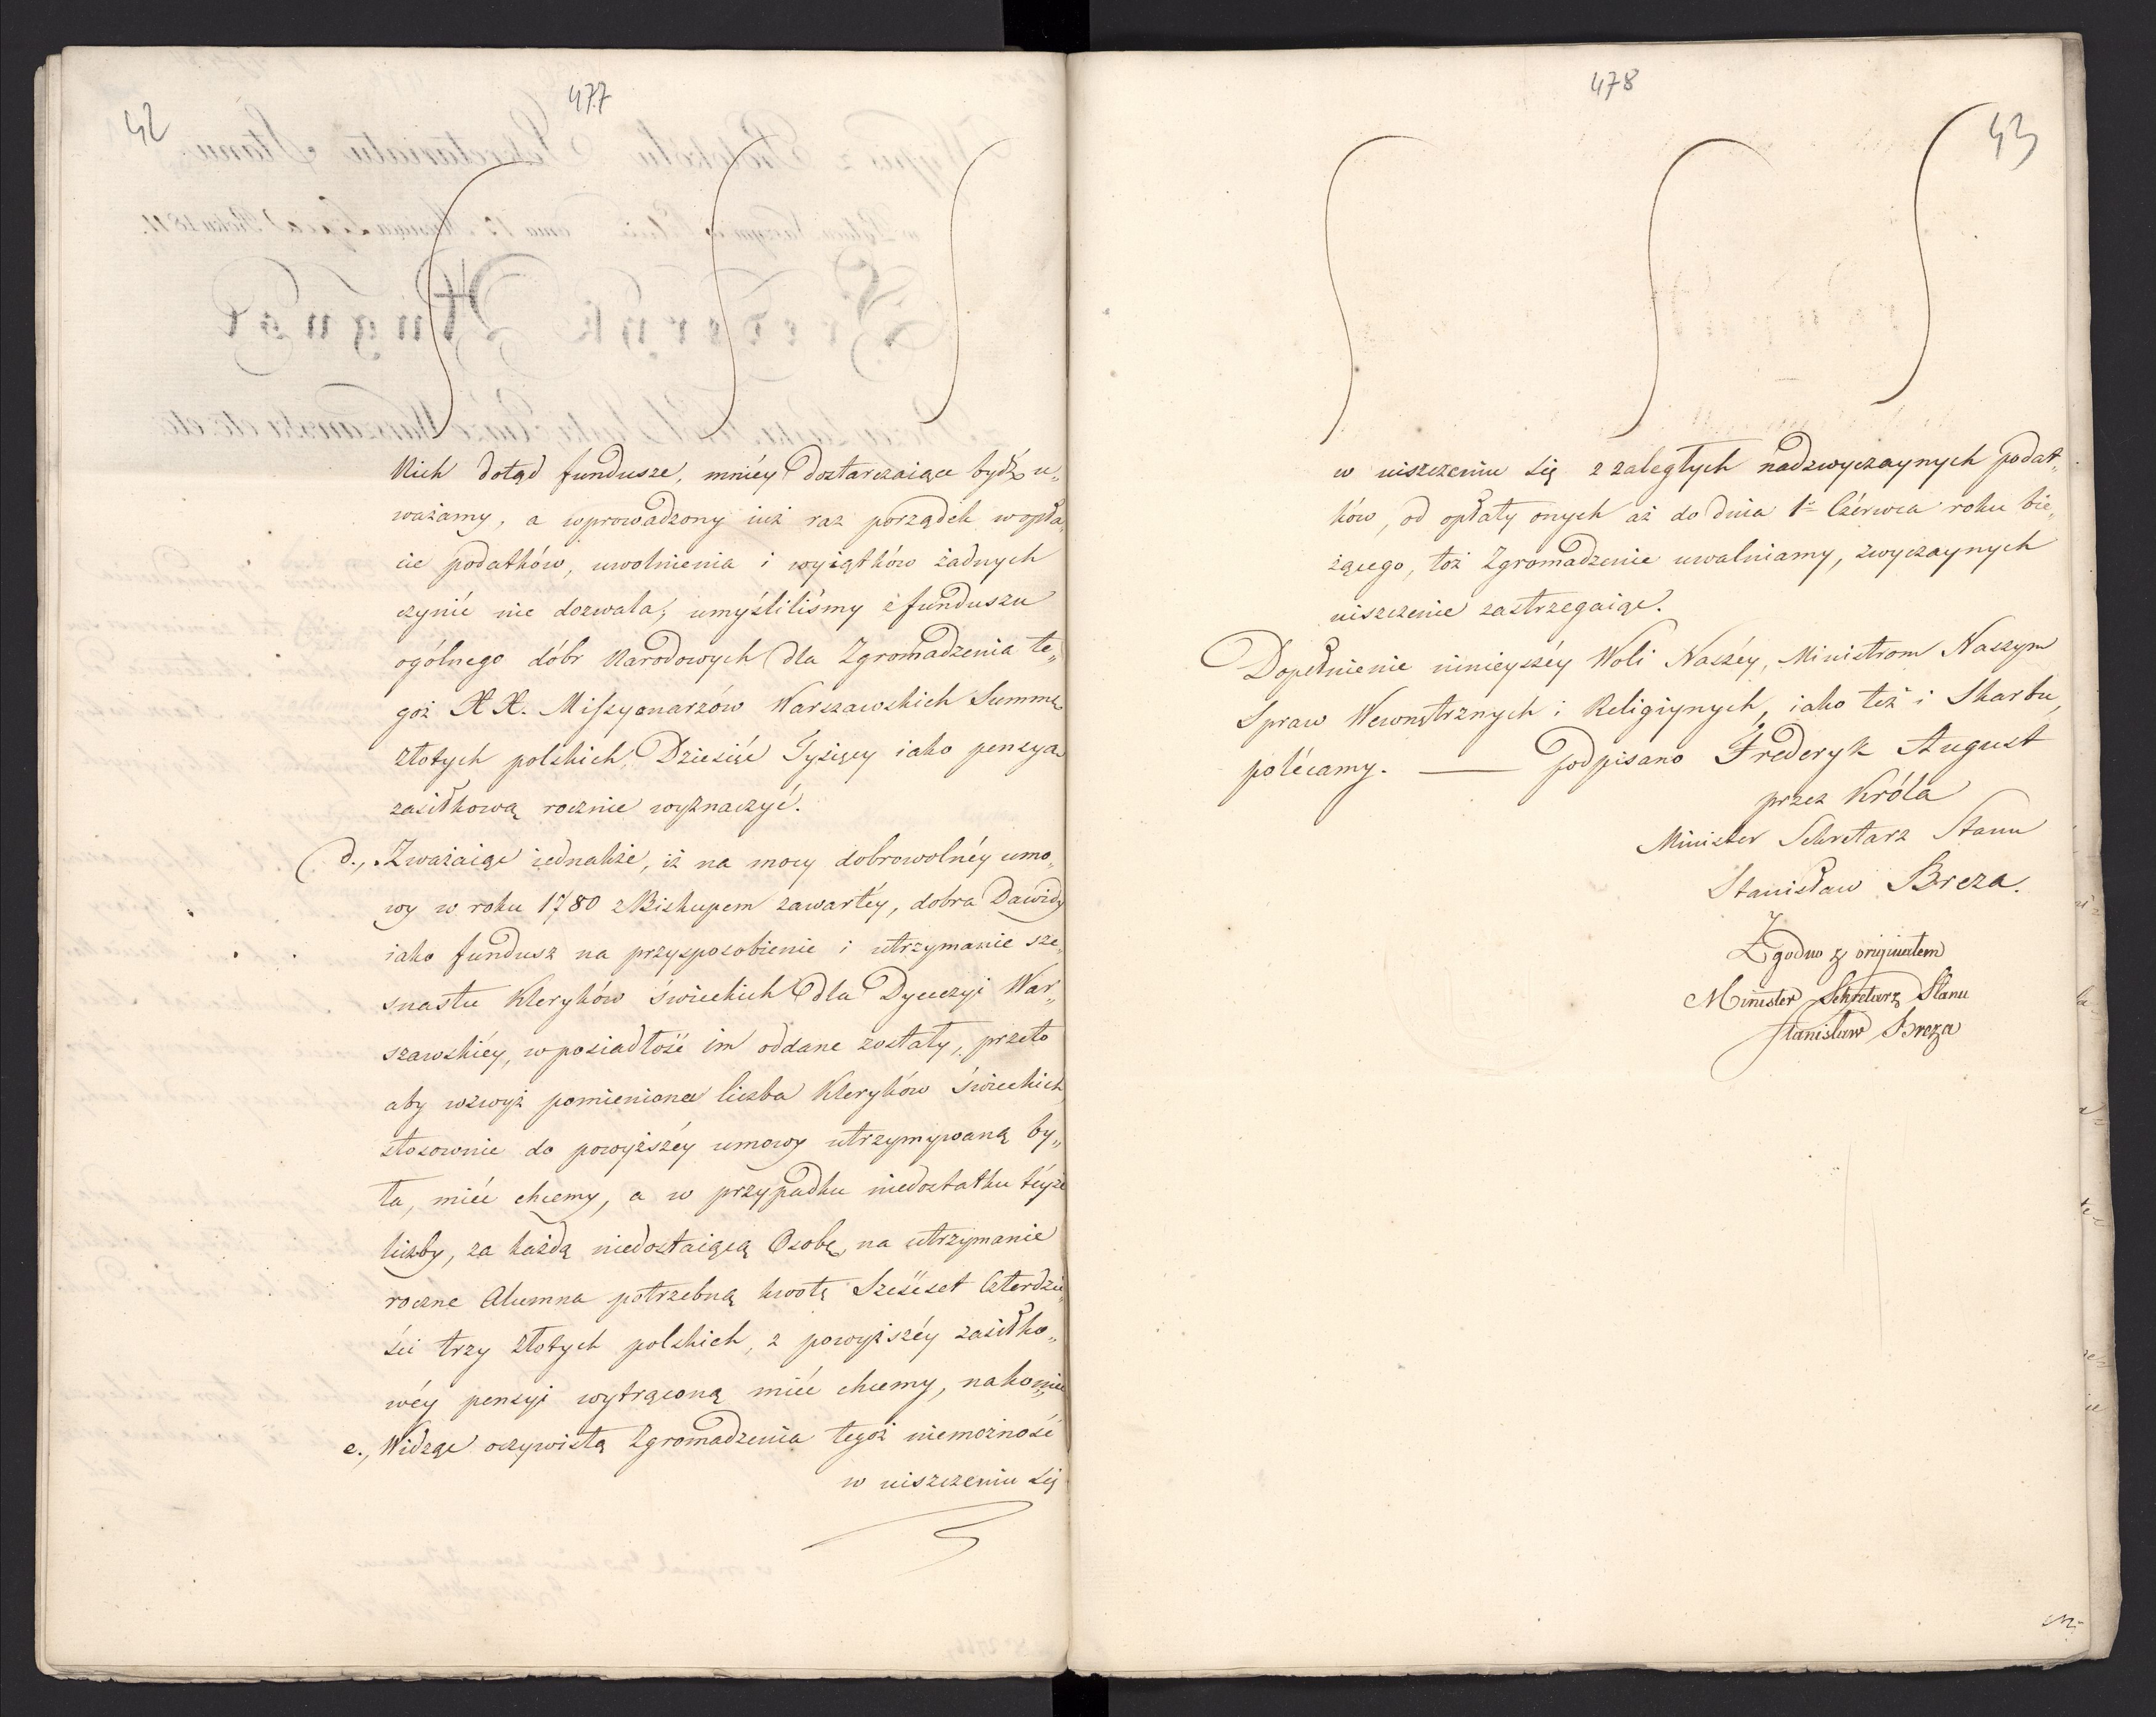 42
477
kich dotąd fundusze, mniéy dostarczaiące bydź u„
ważamy, a wprowadzony iuż raz porządek w opła„
cie podatków, uwolnienia i wyiątków żadnych
czynić nie dozwala, umyśliliśmy z funduszu
ogólnego dóbr Narodowych dla Zgromadzenia te„
goż XX. Missyonarzów Warszawskich Summę
złotych polskich Dziesięć Tysięcy iako pensyą
zasiłkową rocznie wyznaczyć.
d., Zważaiąc iednakże, iż na mocy dobrowolnéy umo„
wy w roku 1780 z Biskupem zawartéy, dobra Dawidy
iako fundusz na przysposobienie i utrzymanie sze„
snastu Kleryków świeckich dla Dyecezyi War„
szawskiéy, w posiadłość im oddane zostały, przeto
aby wzwyż pomieniona liczba Kleryków świeckich
stosownie do powyższéy umowy utrzymywaną by„
ła, mieć chcemy, a w przypadku niedostatku téyże
liczby, za każdą niedostaiącą Osobę, na utrzymanie
roczne Alumna potrzebną kwotę Sześćset Czterdzie„
ści trzy złotych polskich, z powyższéy zasiłko„
wéy pensyi wytrąconą mieć chcemy, nakoniec
e., Widząc oczywistą Zgromadzenia tegoż niemożność
w uiszczeniu się
478
43
w uiszczeniu się z zaległych nadzwyczaynych podat„
ków, od opłaty onych aż do dnia 1º Czérwca roku bie„
żącego, toż Zgromadzenie uwalniamy, zwyczaynych
uiszczenie zastrzegaiąc.
Dopełnienie ninieyszéy Woli Naszéy, Ministrom Naszym
Spraw Wewnętrznych i Religiynych, iako też i Skarbu,
polécamy. — podpisano Frederyk August
przez Króla
Minister Sekretarz Stanu
Stanisław Breza.
Zgodno z originałem
Minister Sekretarz Stanu
Stanisław Breza